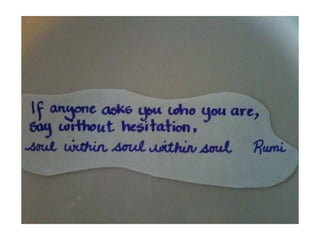 If anyone asks you who you are,
say without hesitation,
soul within soul within soul Rumi